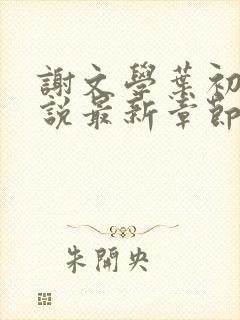 謝文學葉初
說最新章節
朱開央